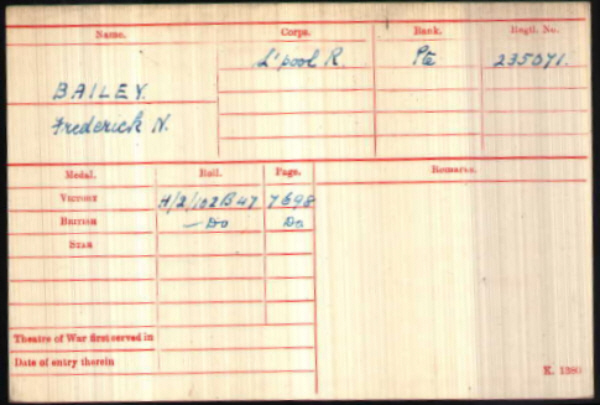 Name. Corps. Rank. Regtl. No.
L'pool R. Pte 235071.
BAILEY.
Frederick N.
Medal. Roll. Page. Remarks.
VICTORY H/2/102B47 7698
BRITISH — Do Do
STAR
Theatre of War first served in
Date of entry therein
K. 1380